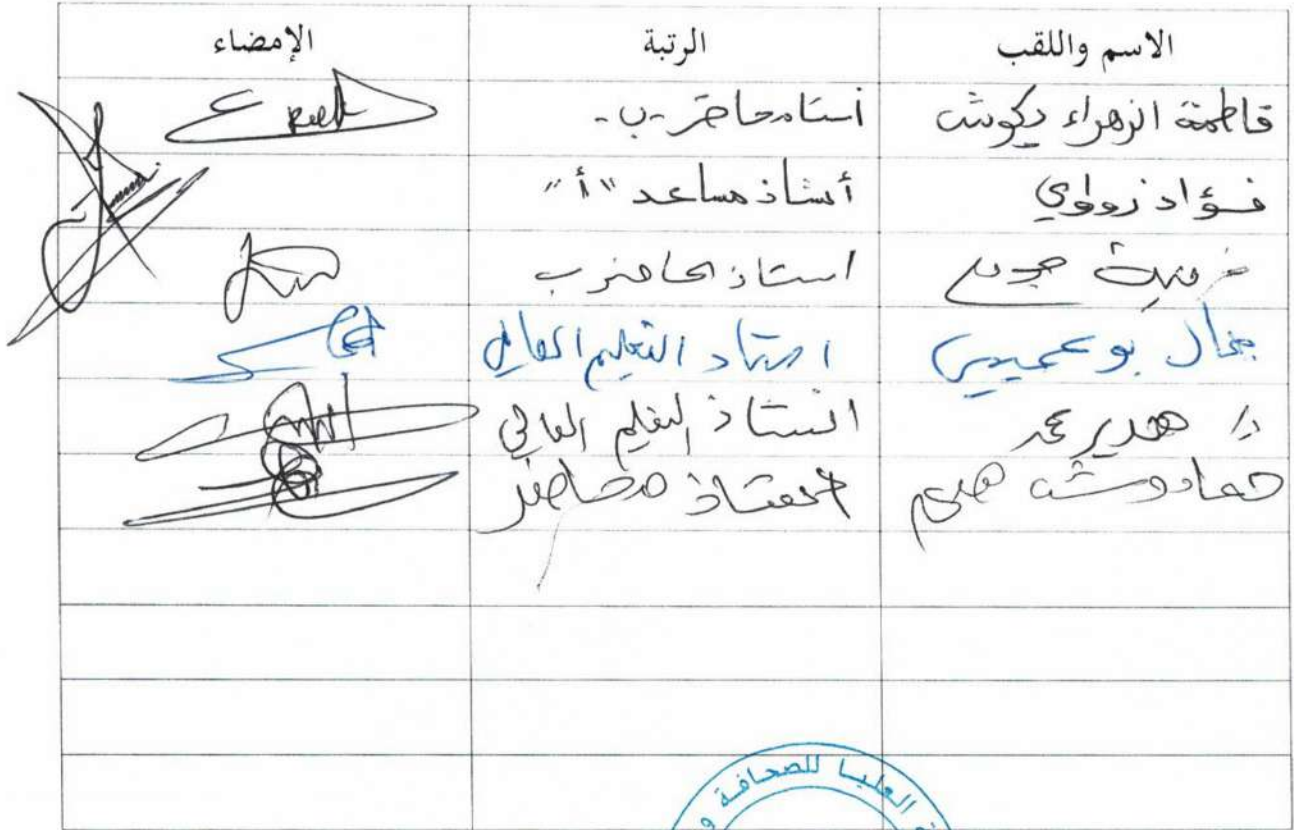 الاسم واللقب الرتبة الإمضاء
فاطمة الزهراء دكوش أستاذ محاضر -ب-
فؤاد زواوي أستاذ مساعد "أ"
أستاذ محاضر ب
جمال بوعجيمي أستاذ التعليم العالي
د. هدير محمد أستاذ التعليم العالي
حمادوش أستاذ محاضر
العليا للصحافة و